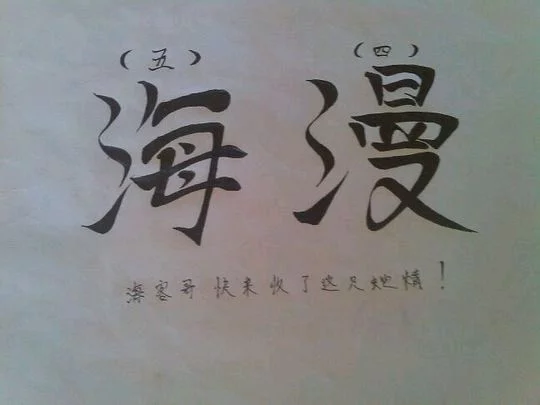 （五） （四）
海 漫
海客哥快来收了这只蛇精！